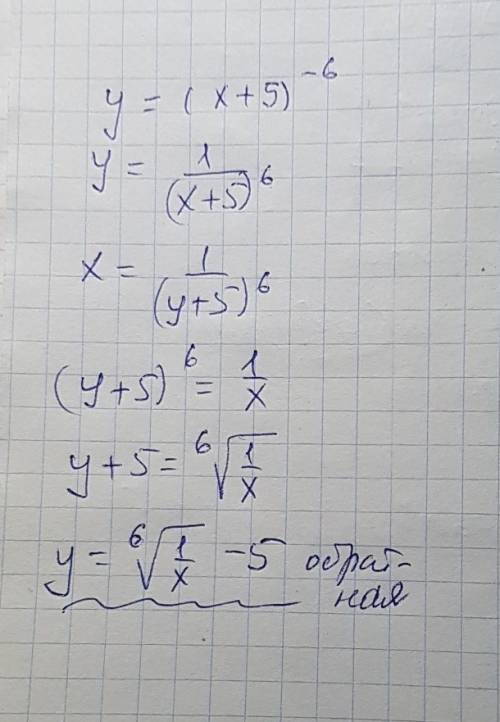 y = (x+5)⁻⁶
y = 1/(x+5)⁶
x = 1/(y+5)⁶
(y+5)⁶ = 1/x
y+5 = ⁶√(1/x)
y = ⁶√(1/x) -5 обрат-
ная